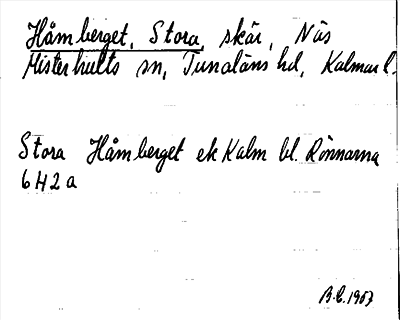 Håmberget, Stora, skär, Näs
Misterhults sn, Tunaläns hd, Kalmar l.
Stora Håmberget ek Kalm bl. Rönnarna
6H2a
B.C. 1957